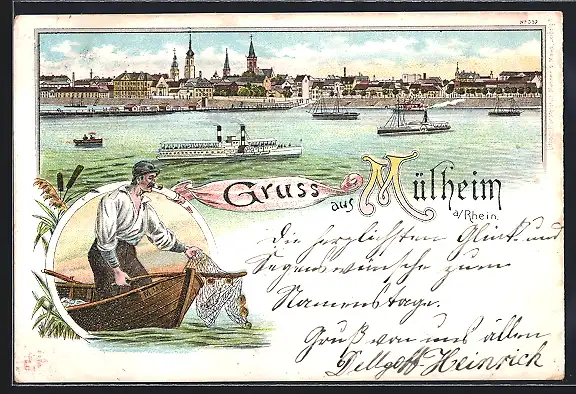 Gruss
aus Mülheim
a/Rhein.
Die herzlichsten Glück- und
Segenswünsche zum
Namenstage.
Gruß von uns allen
Heinrich